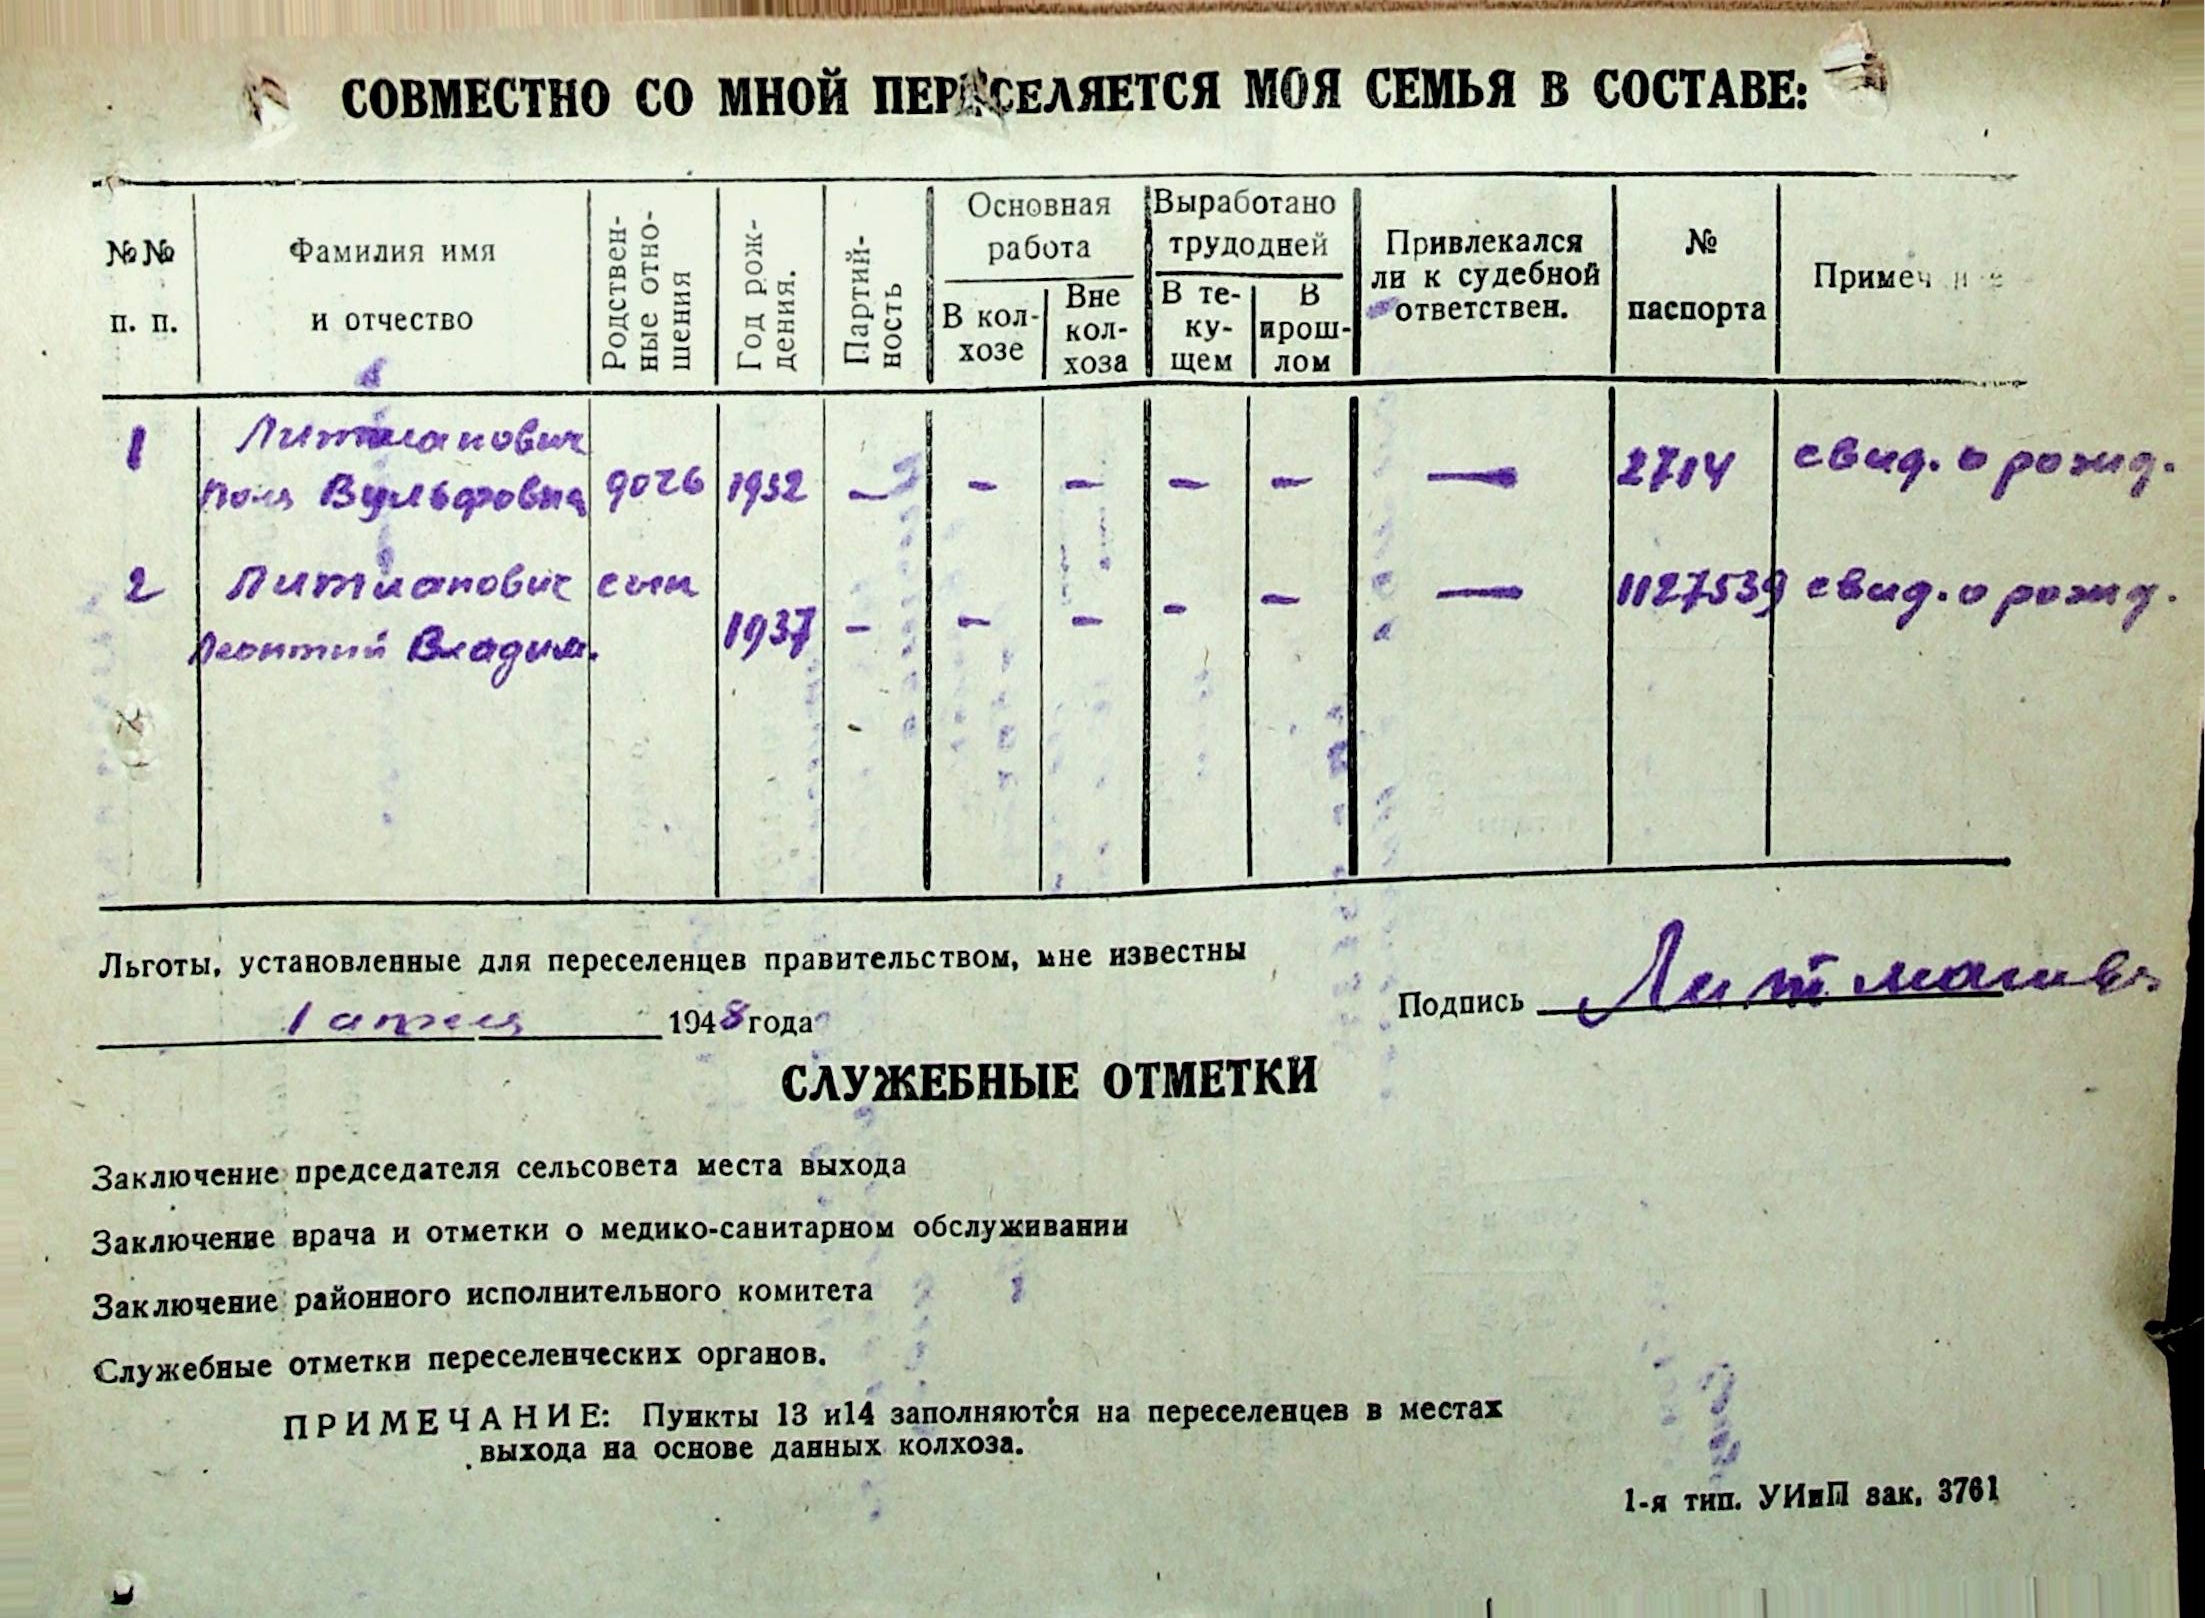 СОВМЕСТНО СО МНОЙ ПЕРЕСЕЛЯЕТСЯ МОЯ СЕМЬЯ В СОСТАВЕ:
№№ п. п.
Фамилия имя и отчество
Родствен-ные отно-шения
Год рож-дения.
Партий-ность
Основная работа
В кол-хозе
Вне кол-хоза
Выработано трудодней
В те-ку-щем
В ирош-лом
Привлекался ли к судебной ответствен.
№ паспорта
Примеч
1 Литманович
Поля Вульфовна дочь 1932 – – – – – — 2714 свид. о рожд.
2 Литманович сын
Леонтий Владим. 1937 – – – – – — 1127539 свид. о рожд.
Льготы, установленные для переселенцев правительством, мне известны
1 апреля 1948 года
Подпись
СЛУЖЕБНЫЕ ОТМЕТКИ
Заключение председателя сельсовета места выхода
Заключение врача и отметки о медико-санитарном обслуживании
Заключение районного исполнительного комитета
Служебные отметки переселенческих органов.
ПРИМЕЧАНИЕ: Пункты 13 и14 заполняются на переселенцев в местах
выхода на основе данных колхоза.
1-я тип. УИиП зак, 3761